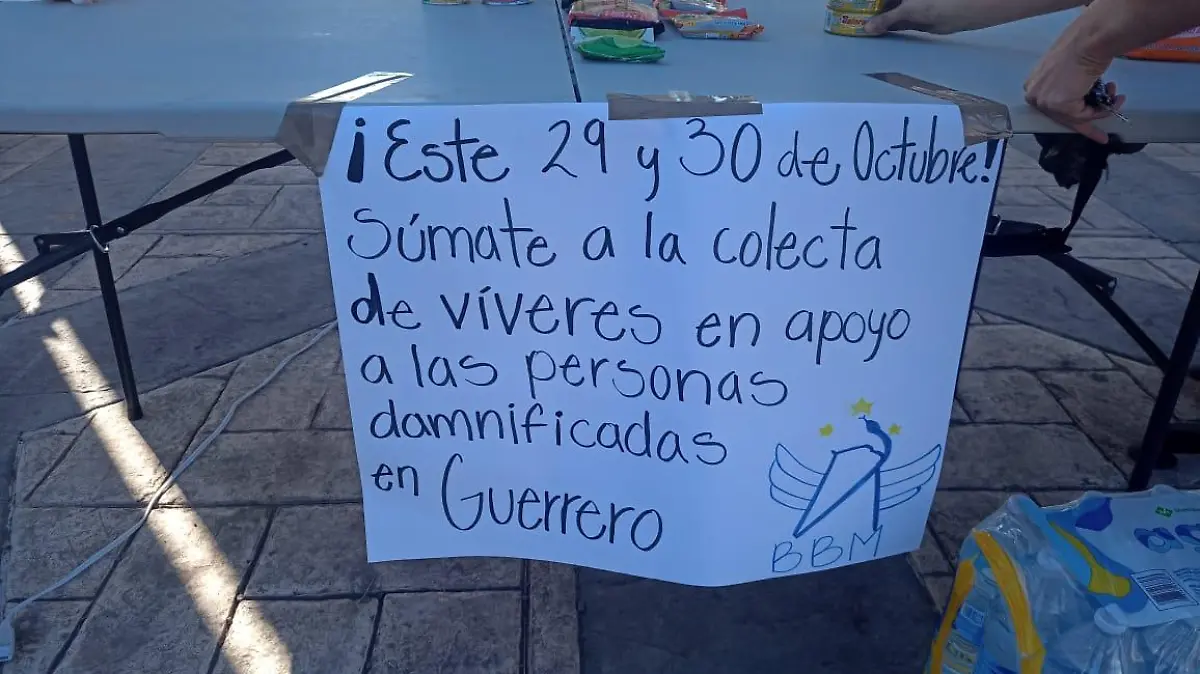 ¡Este 29 y 30 de Octubre!
Súmate a la colecta
de víveres en apoyo
a las personas
damnificadas
en Guerrero
BBM